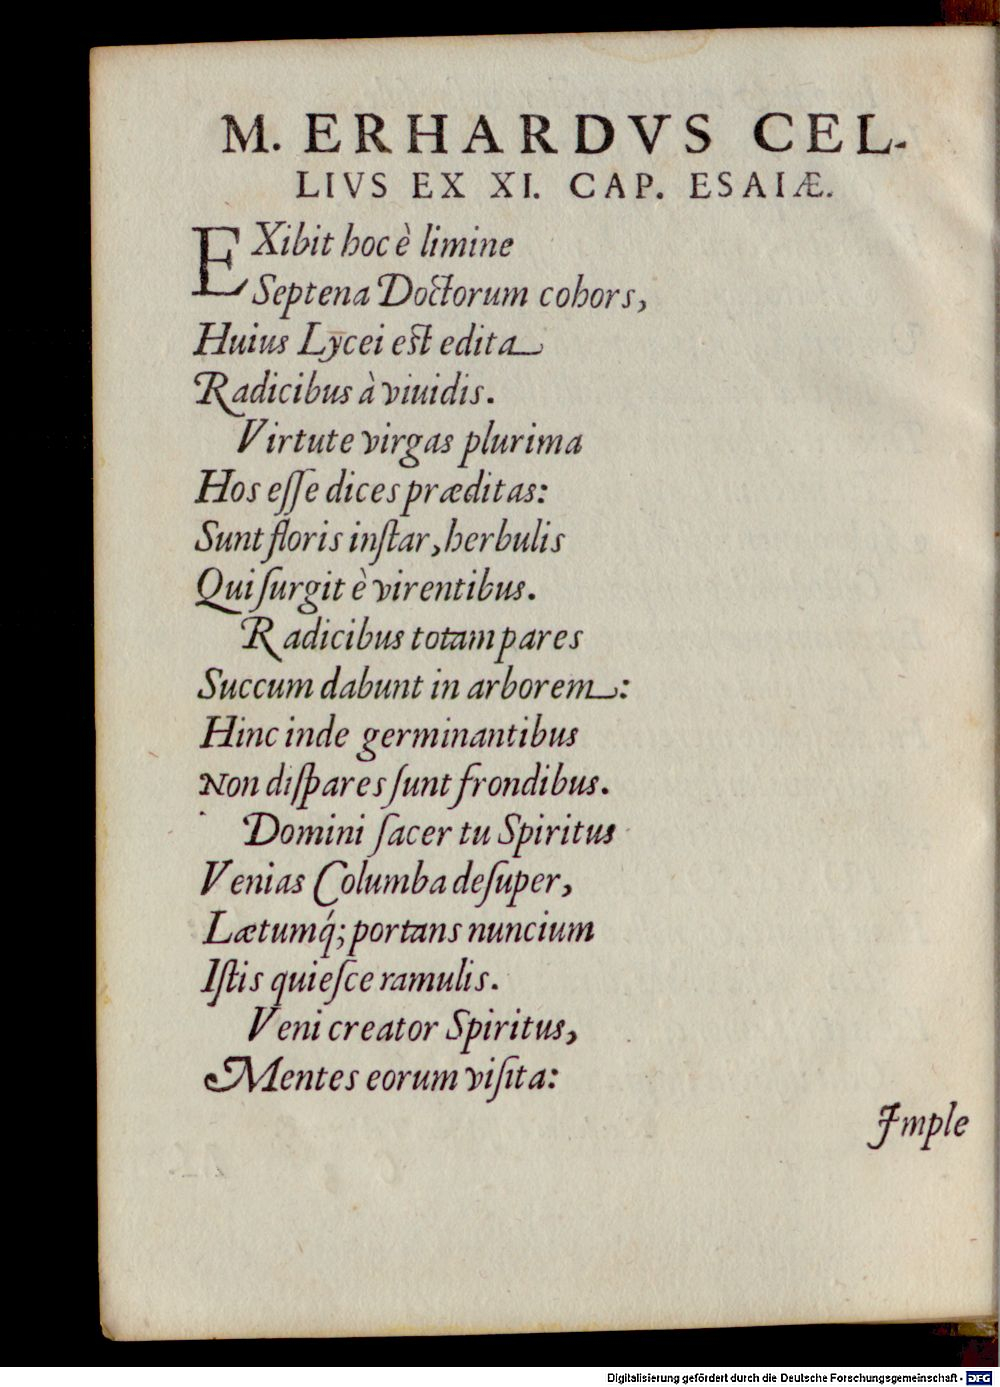 M. ERHARDVS CEL-
LIVS EX XI. CAP. ESAIÆ.
EXibit hoc è limine
Septena Doctorum cohors,
Huius Lycei est edita
Radicibus à viuidis.
Virtute virgas plurima
Hos eſſe dices præditas:
Sunt floris inſtar, herbulis
Qui ſurgit è virentibus.
Radicibus totam pares
Succum dabunt in arborem:
Hinc inde germinantibus
Non diſpares ſunt frondibus.
Domini ſacer tu Spiritus
Venias Columba deſuper,
Lætumq́; portans nuncium
Iſtis quieſce ramulis.
Veni creator Spiritus,
Mentes eorum viſita:
Imple
Digitalisierung gefördert durch die Deutsche Forschungsgemeinschaft - DFG